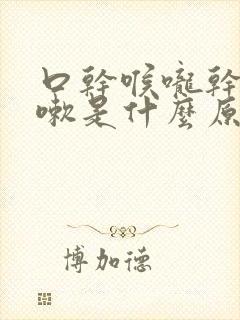 口幹喉嚨幹
嗽是什麼原
博加德